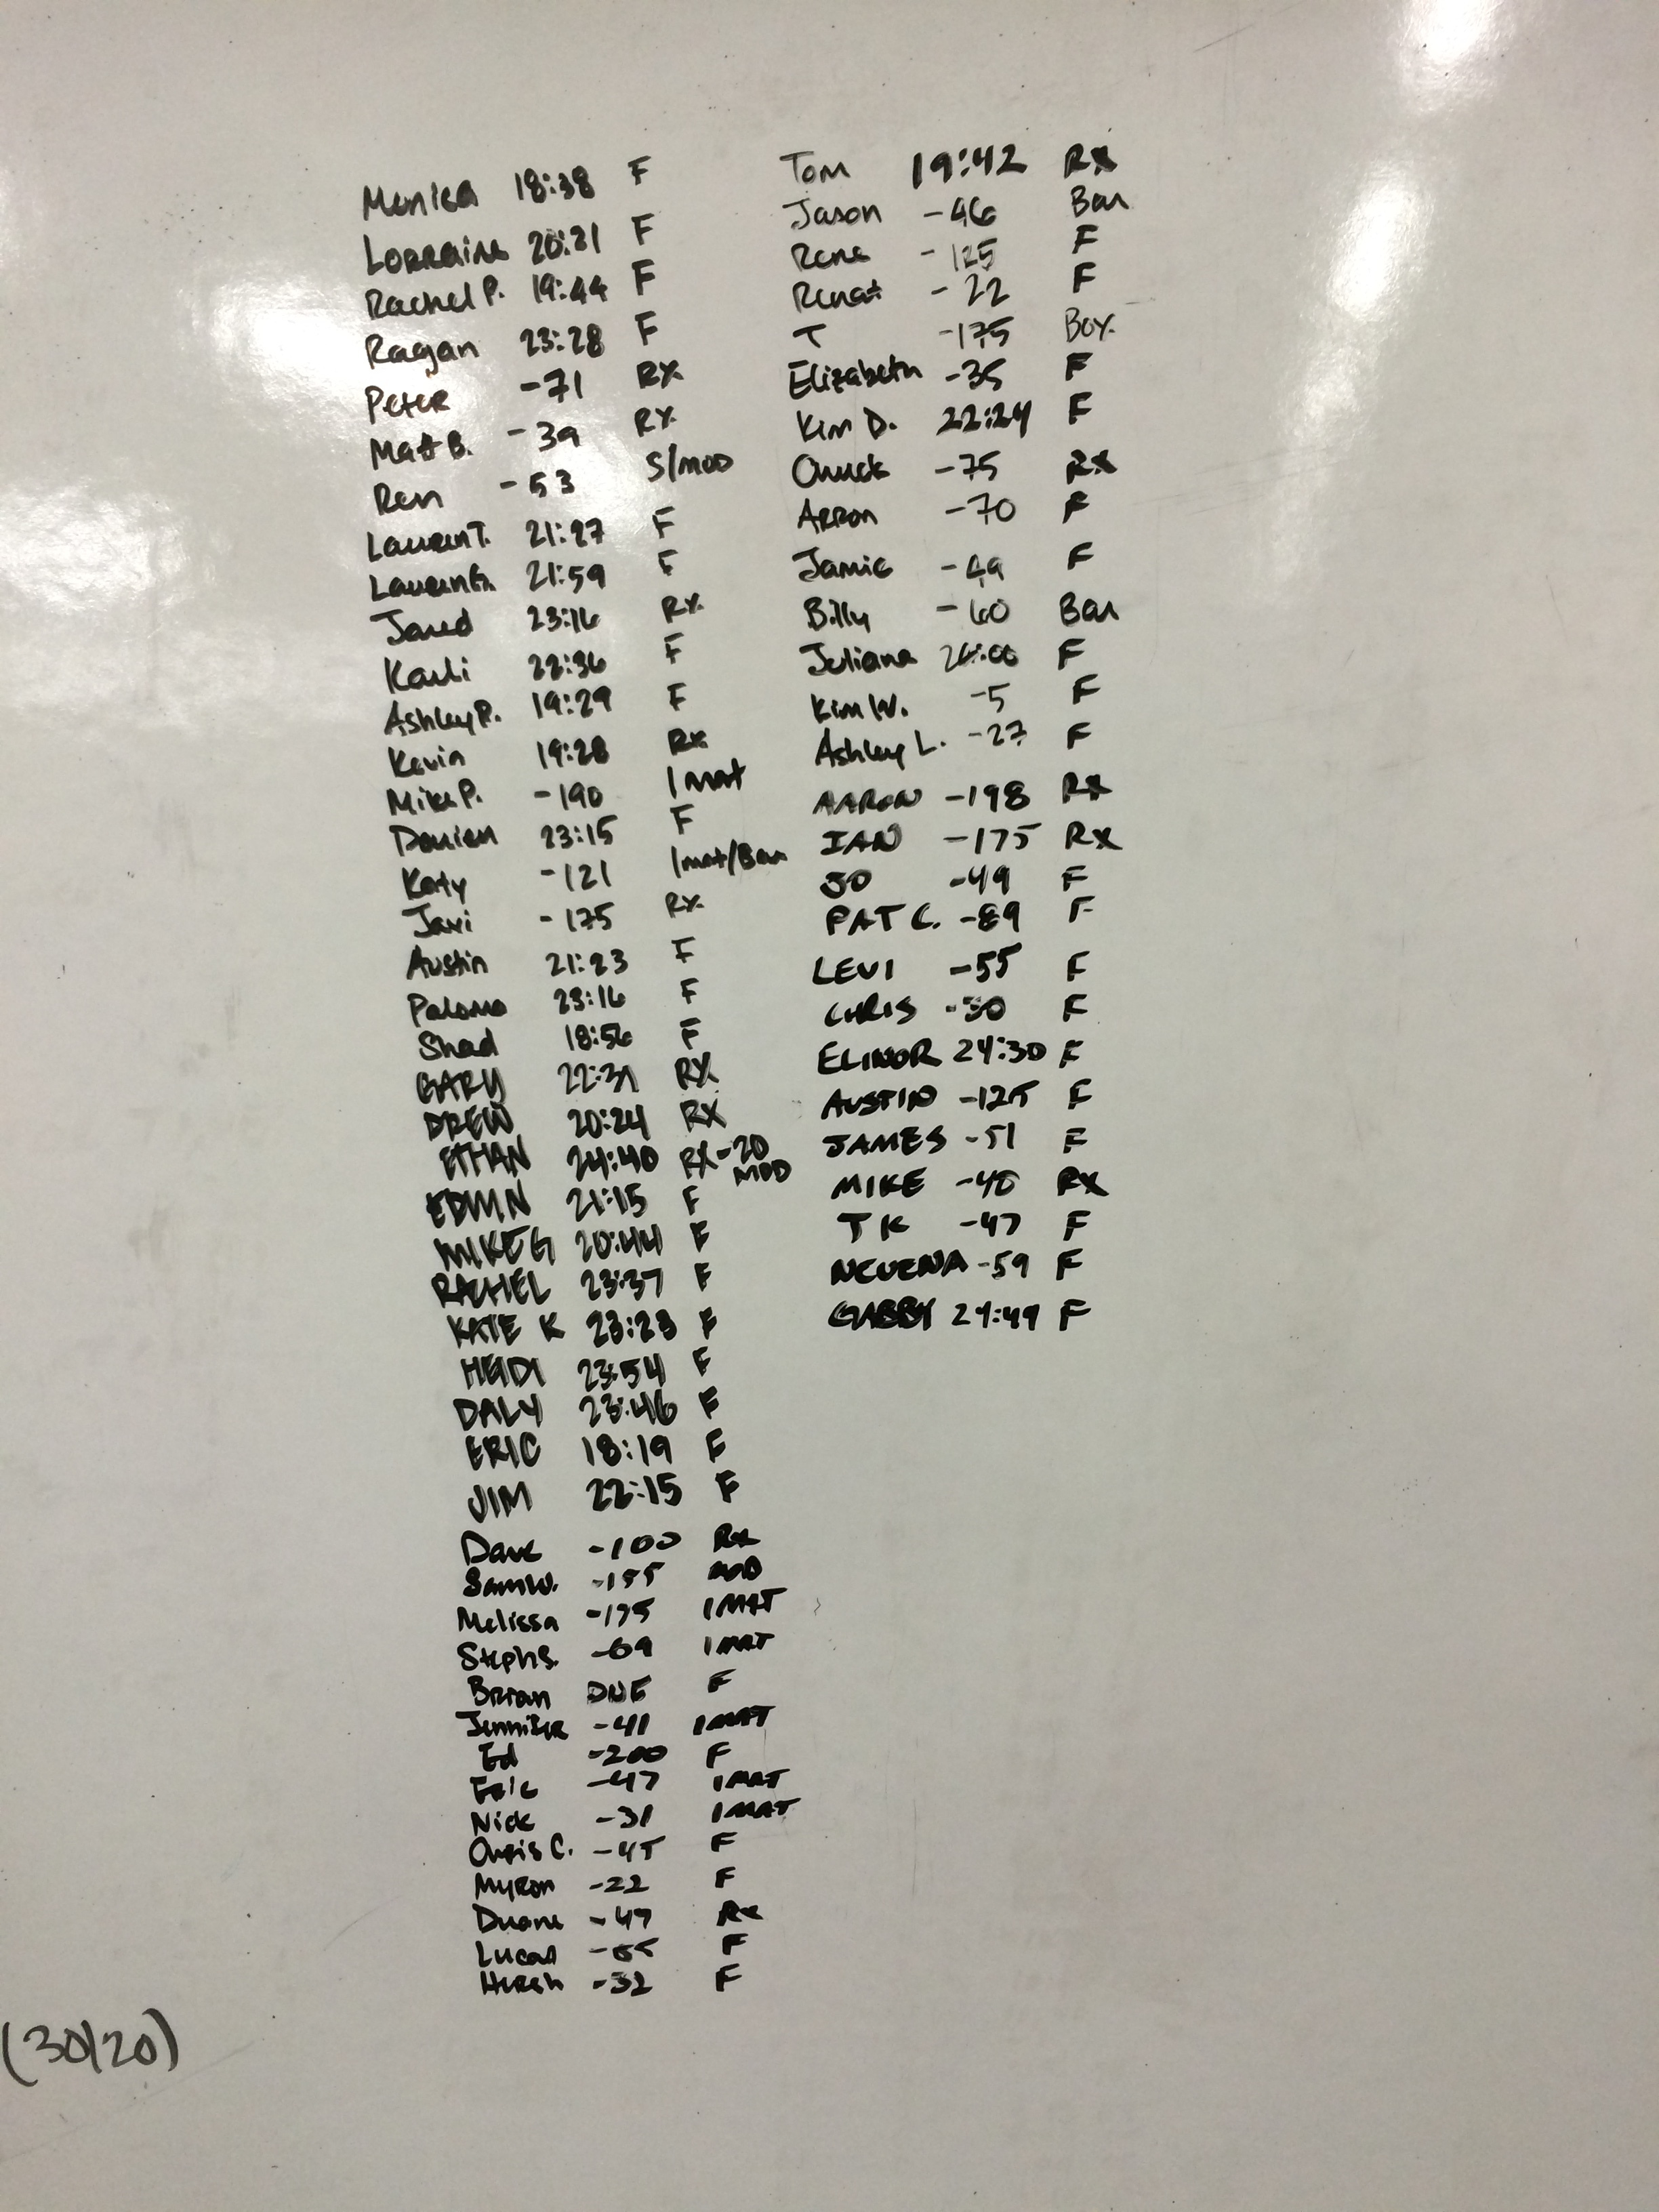 Monica 18:38 F
Lorraine 20:21 F
Rachel P. 19:44 F
Ragan 23:28 F
Peter -71 RX
Matt B. -39 RX
Ren -53 S/MOD
Lauren T. 21:27 F
Lauren G. 21:59 F
Jared 23:16 RX
Karli 22:36 F
Ashley P. 19:29 F
Kevin 19:28 RX
Mike P. -190 1 mat
Damien 23:15 F
Katy -121 1mat/Bar
Javi -175 RX
Austin 21:23 F
Paloma 23:16 F
Shad 18:56 F
GARY 22:31 RX
DREW 20:24 RX
ETHAN 24:40 RX-20 MOD
EDWIN 21:15 F
MIKE G 20:44 F
RACHEL 23:37 F
KATE K 23:23 F
HEIDI 23:54 F
DALY 23:46 F
ERIC 18:19 F
JIM 22:15 F
Dave -100 Rx
Sam W. -155 MOD
Melissa -175 1 MAT
Steph S. -69 1 MAT
Brian DNF F
Jennifer -41 1 MAT
Ed -200 F
Eric -47 1 MAT
Nick -31 1 MAT
Chris C. -45 F
Myron -22 F
Duane -47 Rx
Lucas F
Hersh -32 F
Tom 19:42 RX
Jason -46 Bar
Rene -125 F
Renat -22 F
T -175 Box
Elizabeth -35 F
Kim D. 22:24 F
Chuck -75 RX
Arron -70 F
Jamie -49 F
Billy -60 Bar
Juliana 24:00 F
Kim W. -5 F
Ashley L. -27 F
AARON -198 RX
IAN -175 Rx
JO -49 F
PAT C. -89 F
LEVI -55 F
CHRIS -30 F
ELINOR 24:30 F
AUSTIN -125 F
JAMES -51 F
MIKE -40 RX
TK -47 F
NEVENA -59 F
GABBY 24:49 F
(30/20)